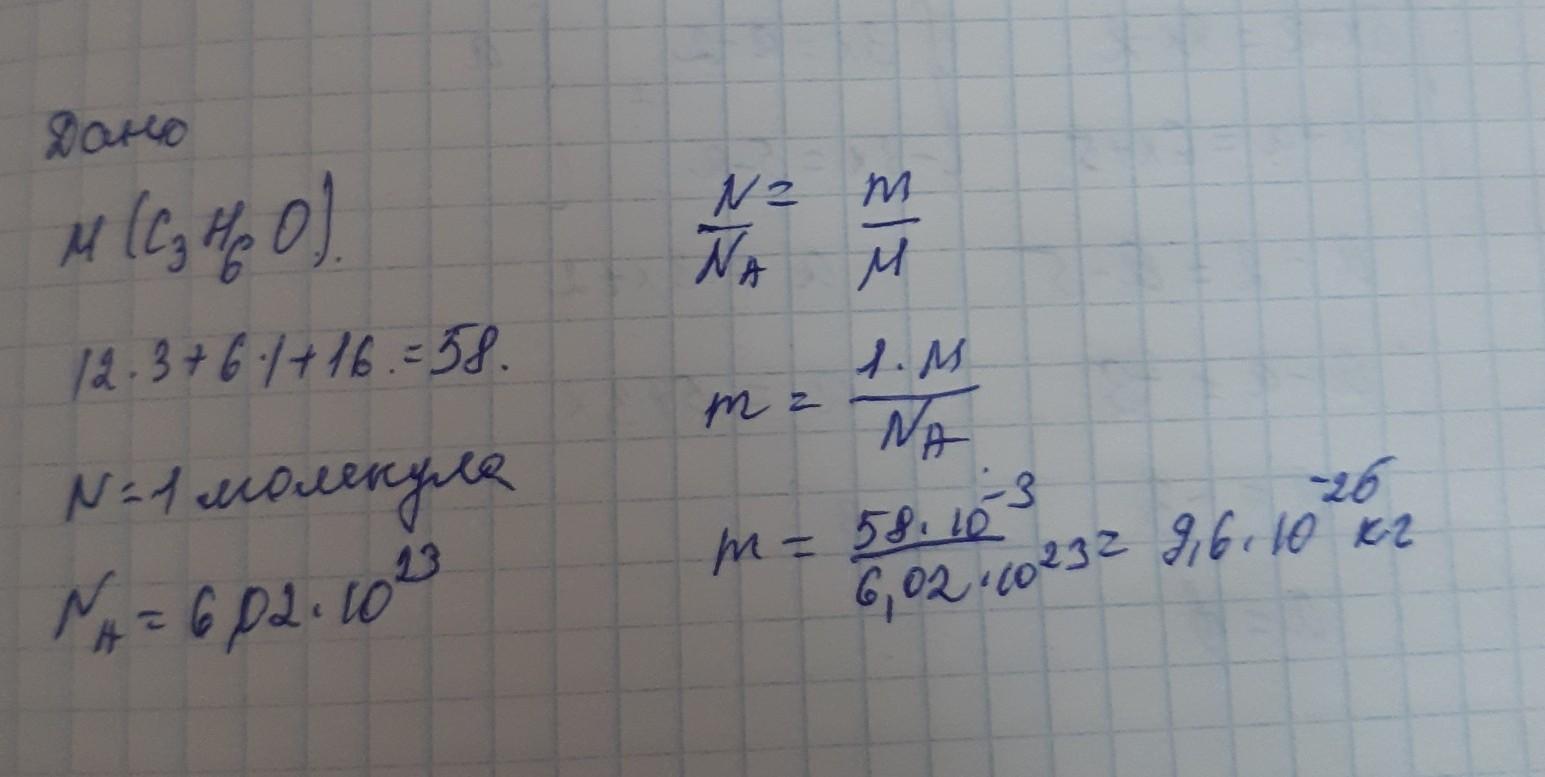 Дано
M (C₃H₆O).
12·3+6·1+16.=58.
N=1 молекула
N_A = 6,02·10²³
N/N_A = m/M
m = 1·M/N_A
m = 58·10⁻³/6,02·10²³ = 9,6·10⁻²⁶ кг